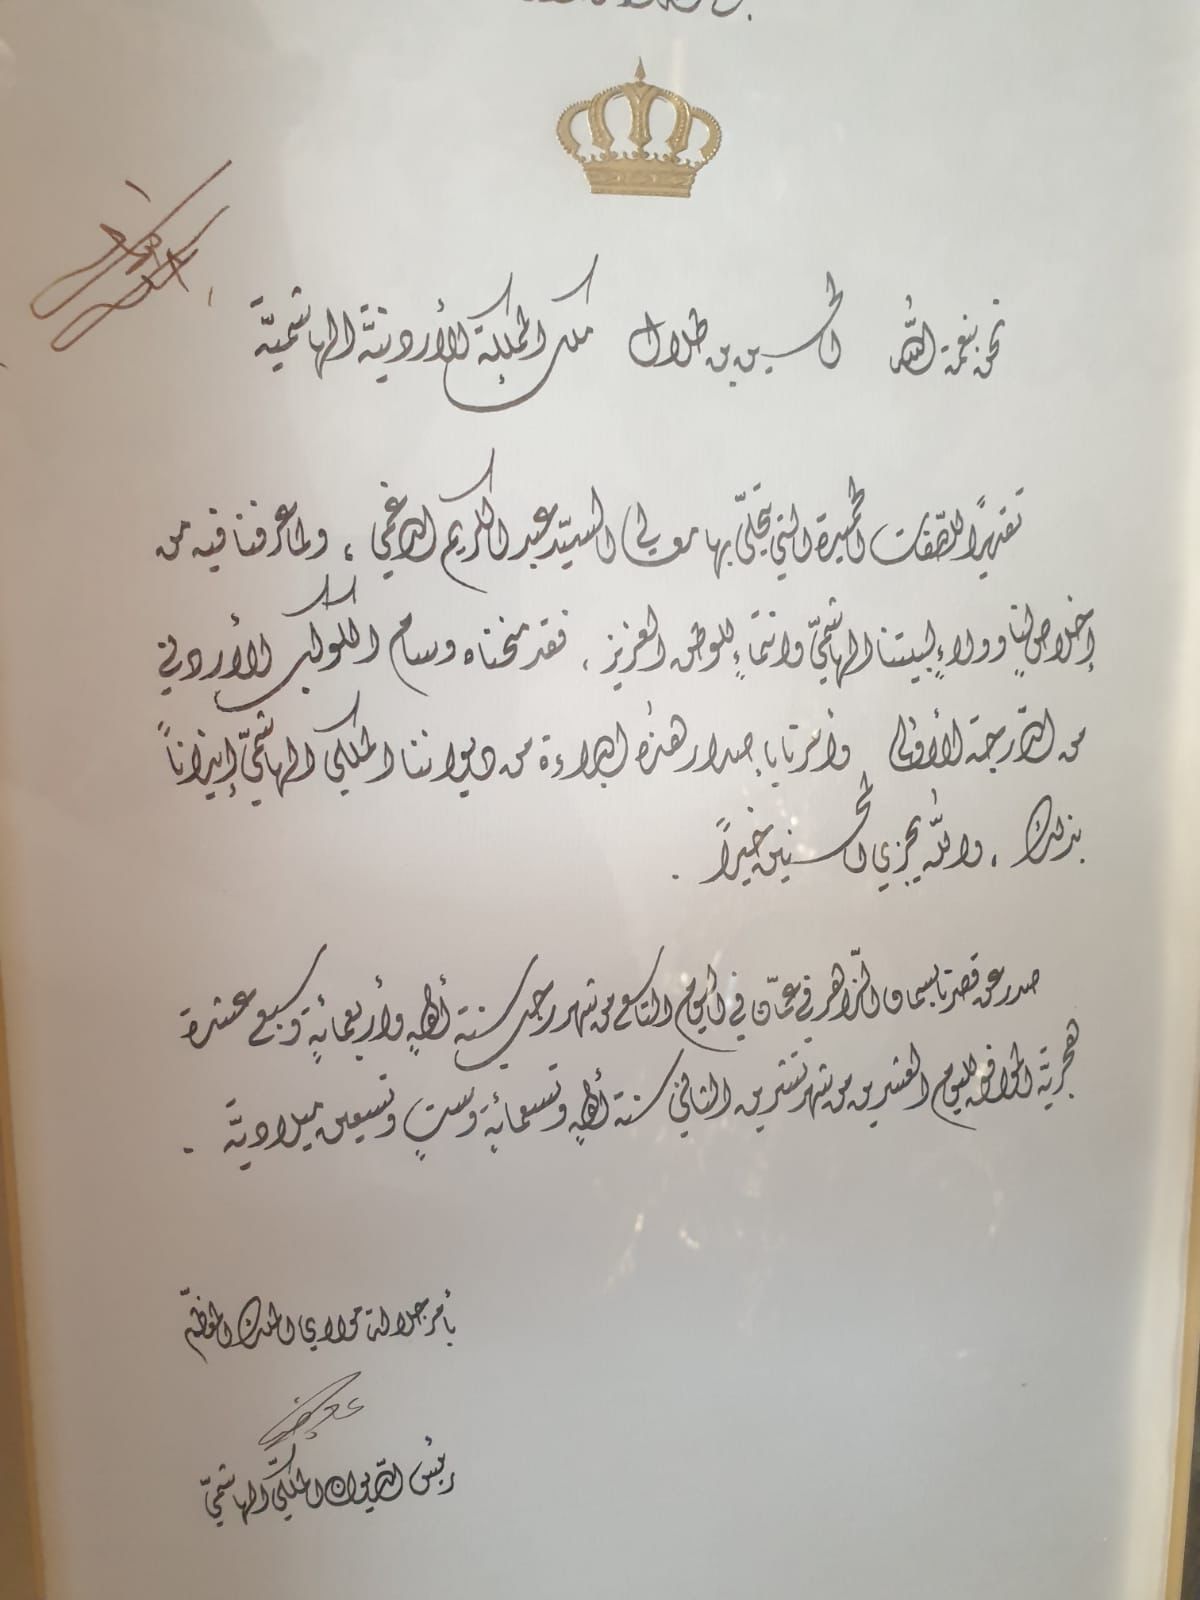 نحن بنعمة الله الحسين بن طلال ملك المملكة الأردنيّة الهاشميّة
تقديرًا للصّفات الحميدة التي يتحلّى بها معالي السيّد عبد الكريم الدغمي ، ولما عرفنا فيه من
إخلاصٍ لنا وولاءٍ لبيتنا الهاشميّ وانتماءٍ للوطن العزيز ، فقد منحناه وسام الكوكب الأردني
من الدّرجة الأولى وأمرنا بإصدار هذه البراءة من ديواننا الملكي الهاشميّ إيذاناً
بذلك ، والله يجزي المحسنين خيراً .
صدر عن قصرنا بسمان الزّاهر في عمّان في اليوم التاسع من شهر رجب سنة ألفٍ وأربعمائةٍ وسبع عشرة
هجريّة الموافق لليوم العشرين من شهر تشرين الثاني سنة ألفٍ وتسعمائةٍ وستٍ وتسعين ميلاديّة .
بأمر جلالة مولاي الملك المعظّم
رئيس الدّيوان الملكيّ الهاشميّ